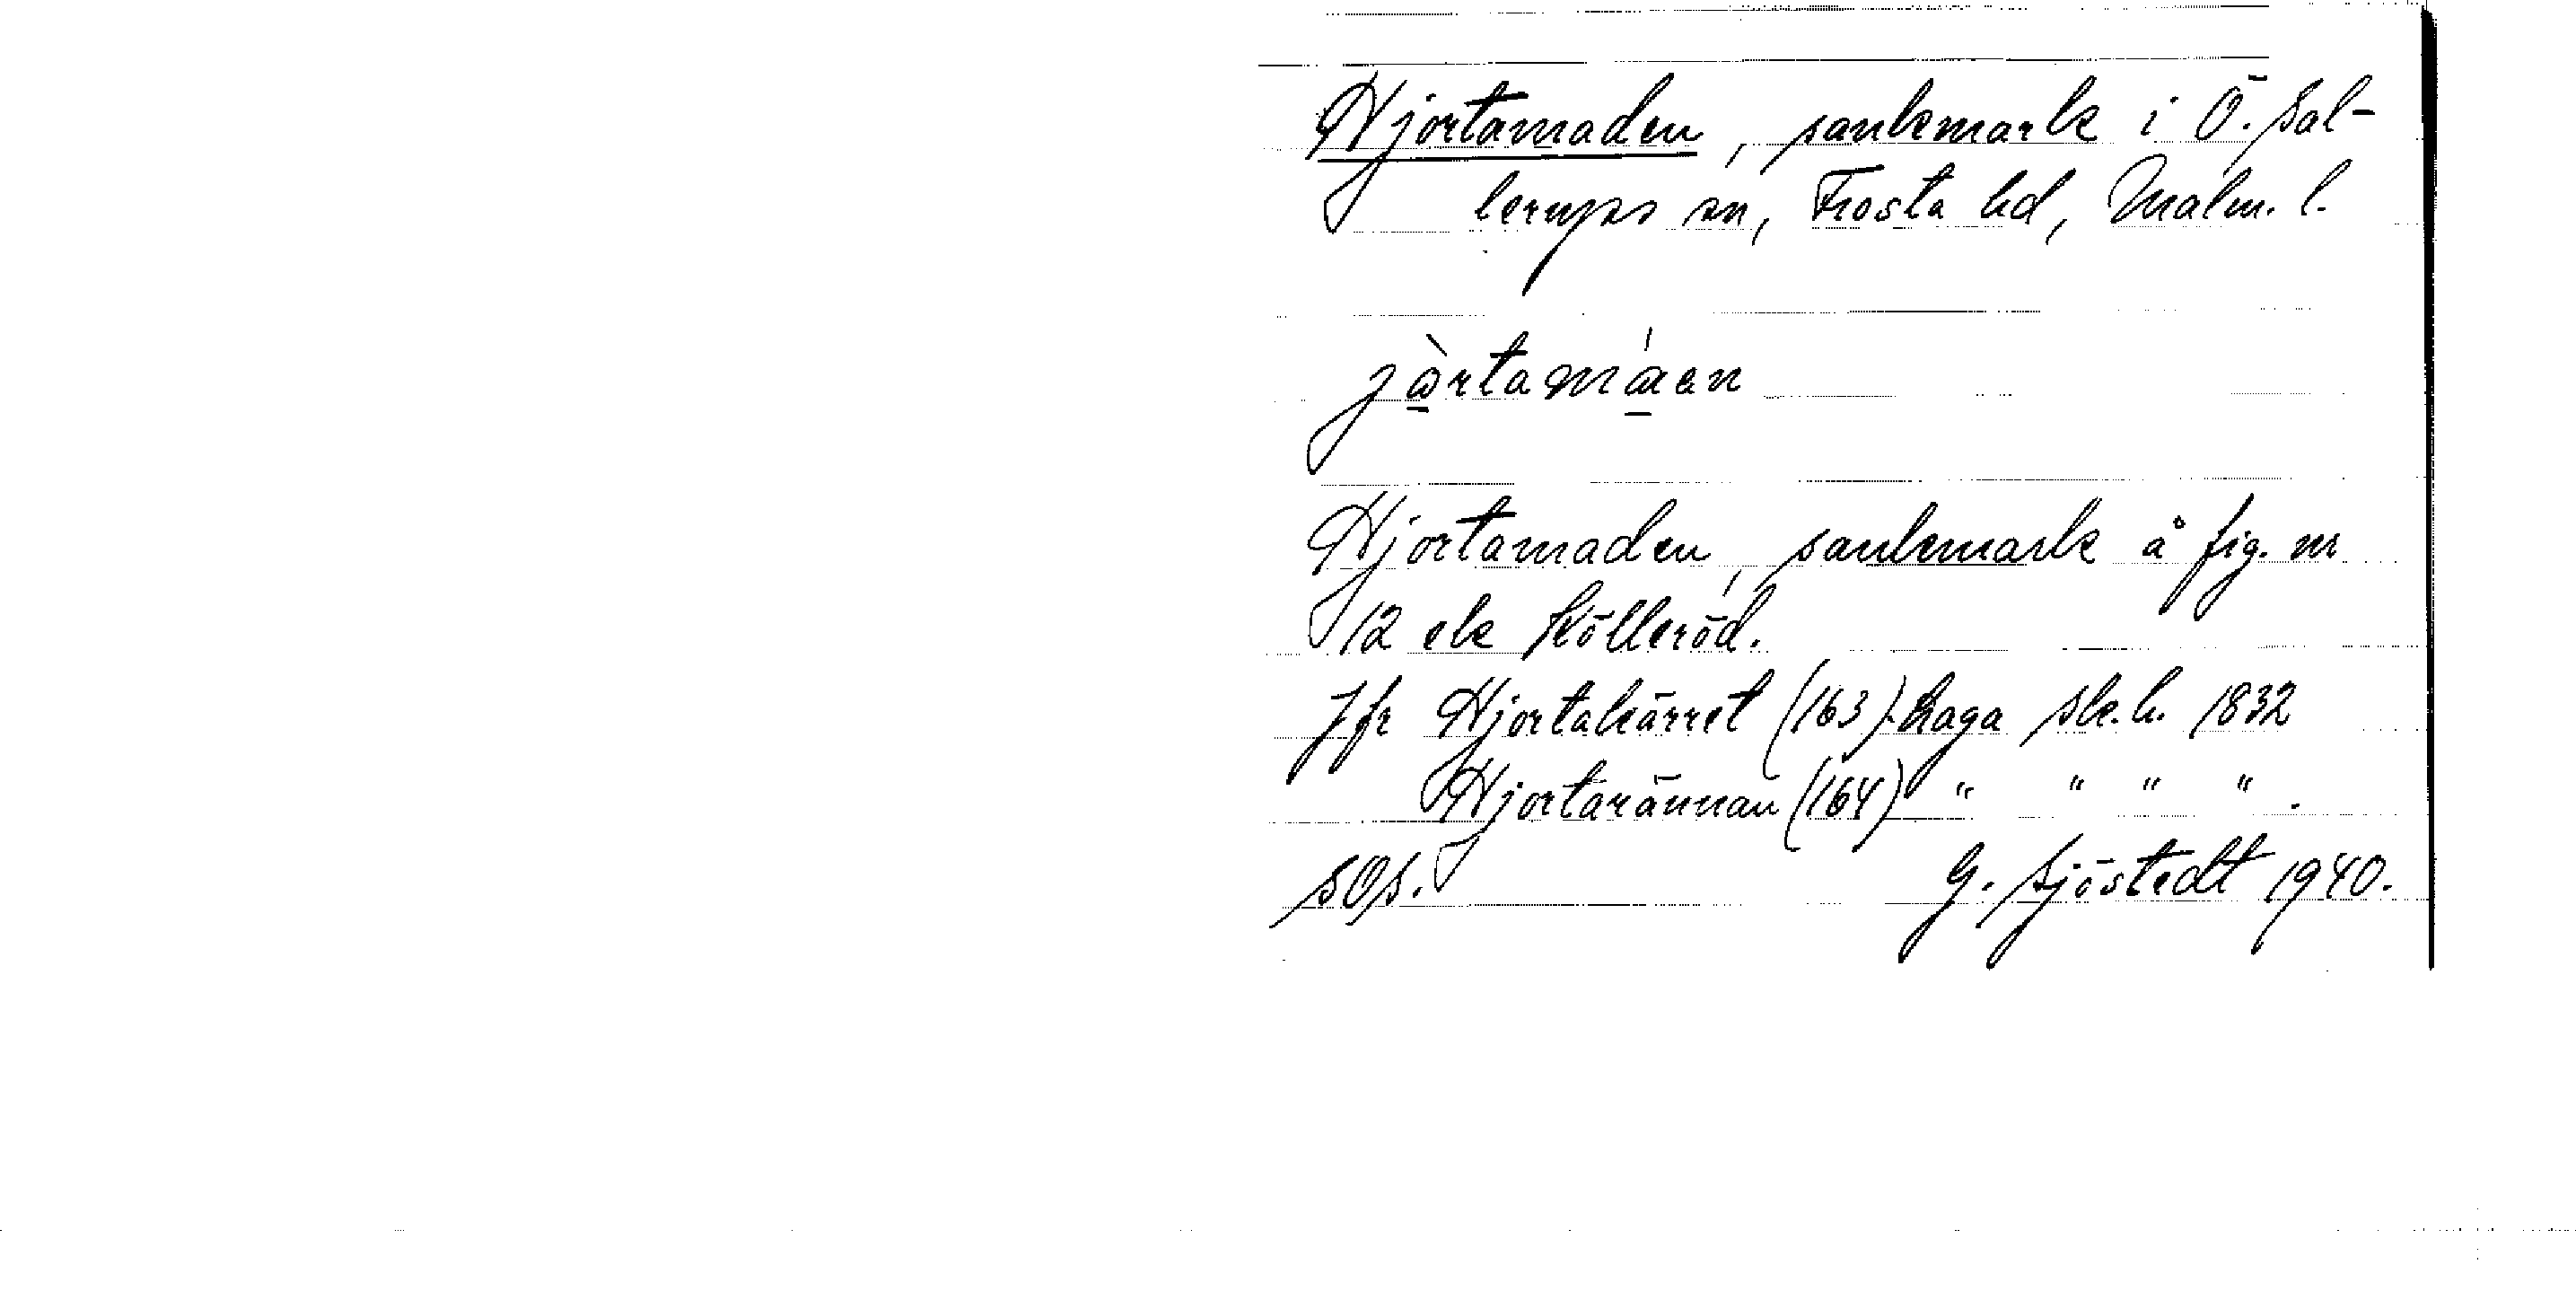 Hjortamaden, sankmark i Ö. Sal-
lerups sn, Frosta hd, Malm. l.
jòrtamáen
Hjortamaden, sankmark å fig. nr
12 ek Kölleröd.
Jfr Hjortakärret (163) haga sk. h. 1832
Hjortarännan (164) " " " ".
SOs.
G. Sjöstedt 1940.